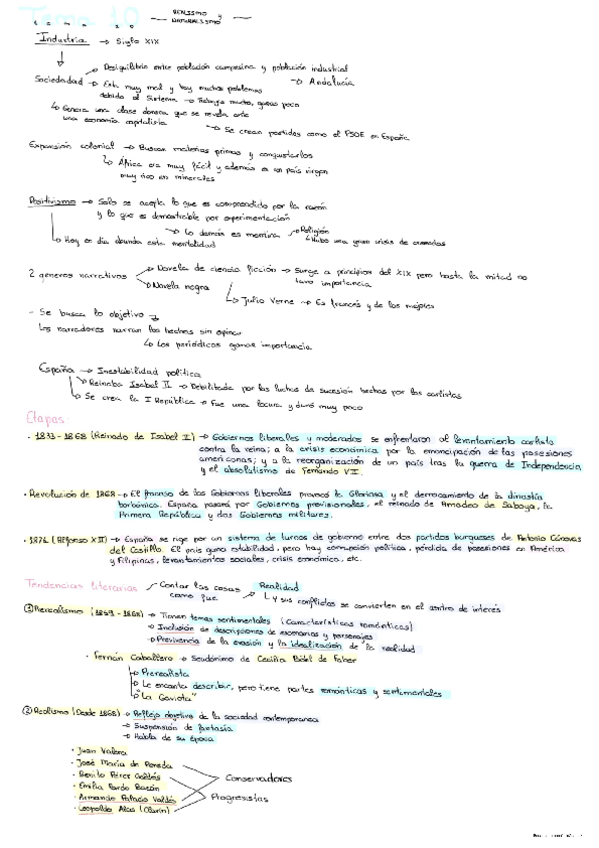 Tema 10
REALISMO Y
NATURALISMO
Industria → Siglo XIX
Desiguilibrio entre población campesina y población industrial
→ Andalucía
Sociedadad → Esta muy mal y hay muchos problemas
debido al Sistema → Trabaja mucho, ganas poco
↳ Genera una clase donera que se revela ante
una economía capitalista
→ Se crean partidos como el PSOE en España
Expansión colonial → Buscan materias primas y conquistarlos
↳ África era muy fácil y además es un país virgen
muy rico en minerales
Positivismo → Solo se acepta lo que es comprendido por la razón
y lo que es demostrable por experimentación
→ Lo demás es mentira → Religión
↳ Hubo una gran crisis de
↳ Hoy en día abunda esta mentalidad
2 generos narrativos → Novela de ciencia ficción → Surge a principios del XIX pero hasta la mitad no
tuvo importancia
→ Novela negra
↳ Julio Verne → Es francés y de los mejores
- Se busca lo objetivo
Los narradores narran los hechos sin opinar
↳ Los periódicos ganan importancia
España → Inestabilidad política
→ Reinaba Isabel II → Debilitada por las luchas de sucesión hechas por los carlistas
→ Se crea la I República → Fue una locura y duró muy poco
Etapas:
· 1833-1868 (Reinado de Isabel II) → Gobiernos liberales y moderados se enfrentaron al levantamiento carlista
contra la reina; a la crisis económica por la emancipación de las posesiones
americanas; y a la reorganización de un país tras la guerra de Independencia
y el absolutismo de Fernando VII.
· Revolución de 1868 → El fracaso de los Gobiernos liberales provocó la Gloriosa y el derrocamiento de la dinastía
borbónica. España pasará por Gobiernos provisionales, el reinado de Amadeo de Saboya, la
Primera República y dos Gobiernos militares.
· 1874 (Alfonso XII) → España se rige por un sistema de turnos de gobierno entre dos partidos burgueses de Antonio Cánovas
del Castillo. El país gana estabilidad, pero hay corrupción política, pérdida de posesiones en América
y Filipinas, levantamientos sociales, crisis económica, etc.
Tendencias literarias → Contar las cosas
como que
Realidad
↳ y sus conflictos se convierten en el centro de interés
① Prerrealismo (1849-1868) → Tienen temas sentimentales (Características románticas)
→ Inclusión de descripciones de escenarios y personajes
→ Previvencia de la evasión y la idealización de la realidad
· Fernán Caballero → Seudónimo de Cecilia Böhl de Faber
→ Prerealista
→ Le encanta describir, pero tiene partes románticas y sentimentales
→ "La Gaviota"
② Realismo (Desde 1868) → Reflejo objetivo de la sociedad contemporanea
→ Suspensión de fantasía
→ Habla de su época
· Juan Valera
· José María de Pereda
· Benito Pérez Galdós
· Emilia Pardo Bazán
· Armando Palacio Valdés
· Leopoldo Alas (Clarín)
Conservadores
Progresistas